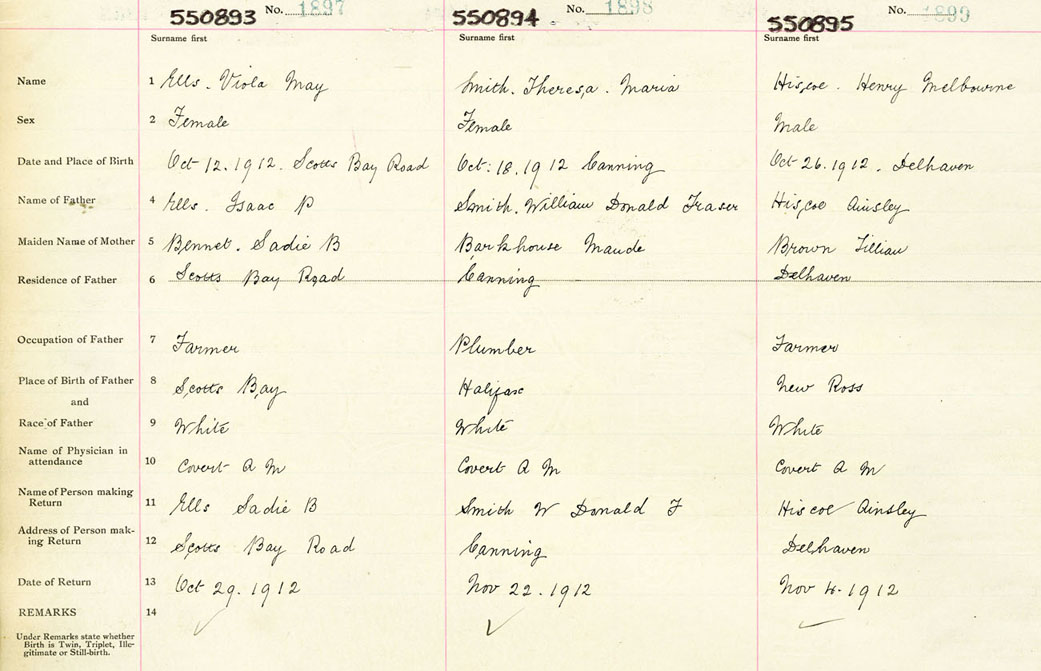 550893 No. 1897 550894 No. 1898 550895 No. 1899
Surname first Surname first Surname first
Name 1 Ells. Viola May Smith. Theresa. Maria Hiscoe. Henry Melbourne
Sex 2 Female Female Male
Date and Place of Birth Oct 12.1912. Scotts Bay Road Oct. 18.1912 Canning Oct 26.1912. Delhaven
Name of Father 4 Ells. Isaac P Smith. William Donald Fraser Hiscoe Ainsley
Maiden Name of Mother 5 Bennet. Sadie B Barkhouse Maude Brown Lillian
Residence of Father 6 Scotts Bay Road Canning Delhaven
Occupation of Father 7 Farmer Plumber Farmer
Place of Birth of Father 8 Scotts Bay Halifax New Ross
and
Race of Father 9 White White White
Name of Physician in
attendance 10 Covert A M Covert A M Covert A M
Name of Person making
Return 11 Ells Sadie B Smith W Donald F Hiscoe Ainsley
Address of Person mak-
ing Return 12 Scotts Bay Road Canning Delhaven
Date of Return 13 Oct 29.1912 Nov 22.1912 Nov 4.1912
REMARKS 14
Under Remarks state whether
Birth is Twin, Triplet, Ille-
gitimate or Still-birth.